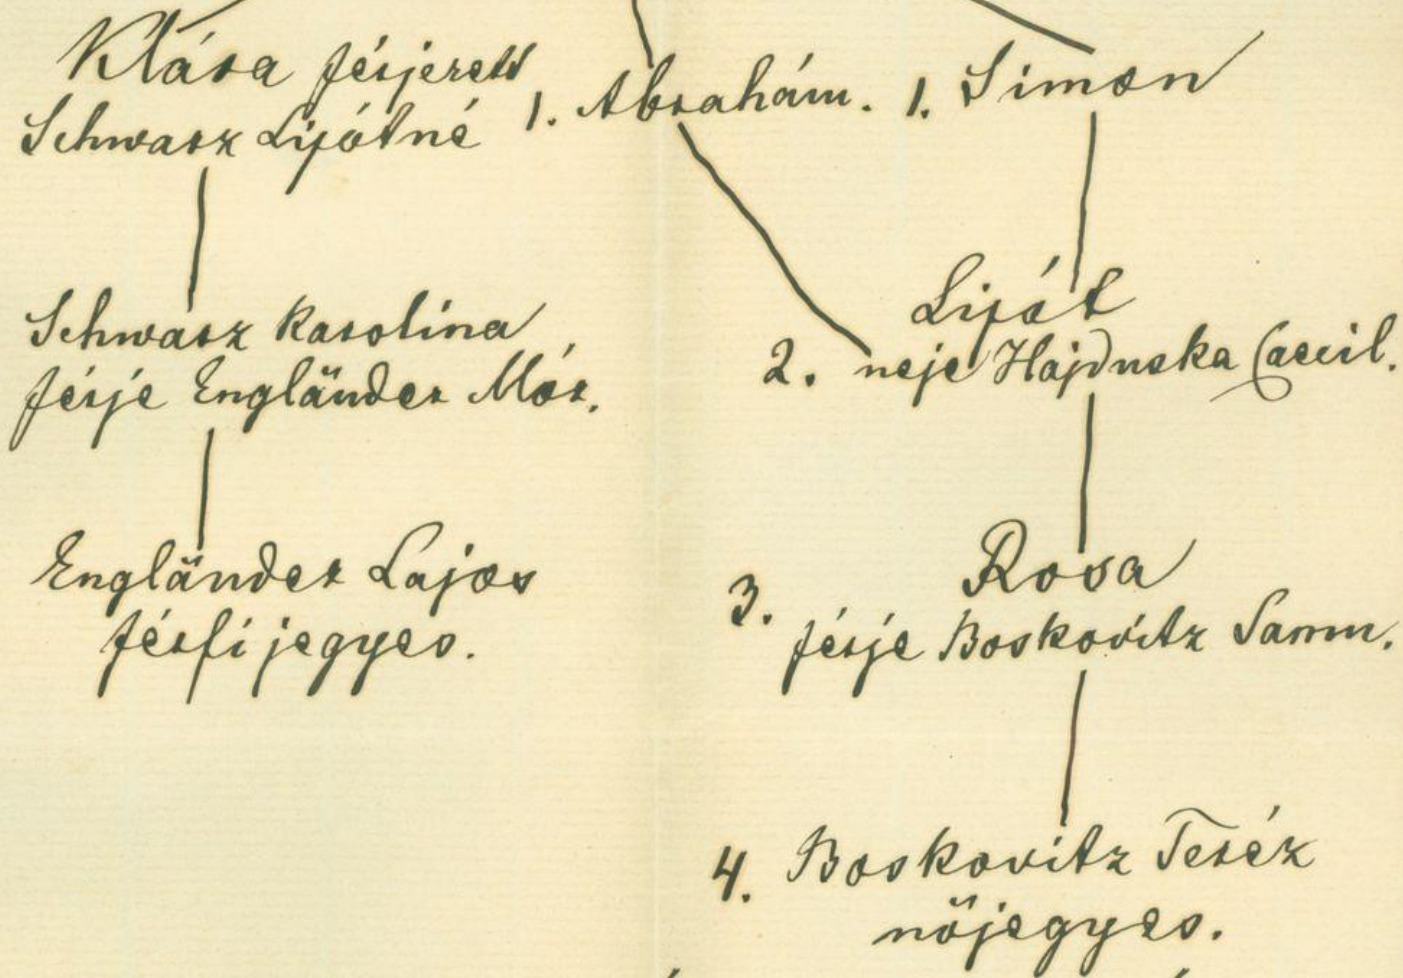 Klára férjezett
Schwarz Lipótné
1. Abrahám.
1. Simon
Schwarz Karolina
férje Engländer Mór.
Lipót
2. neje Hajduska Caecil.
Engländer Lajos
férfi jegyes.
3. Rosa
férje Boskovitz Sam.
4. Boskovitz Teréz
nőjegyes.